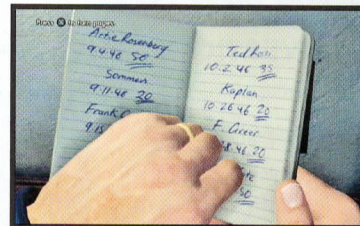 Press X to turn pages.
Artie Rosenberg
9.4.46 50
Sommers
9.11.46 20
Frank
9.15
Ted Hall
10.2.46 35
Kaplan
10.26.46 20
F. Greer
8.46 20
50